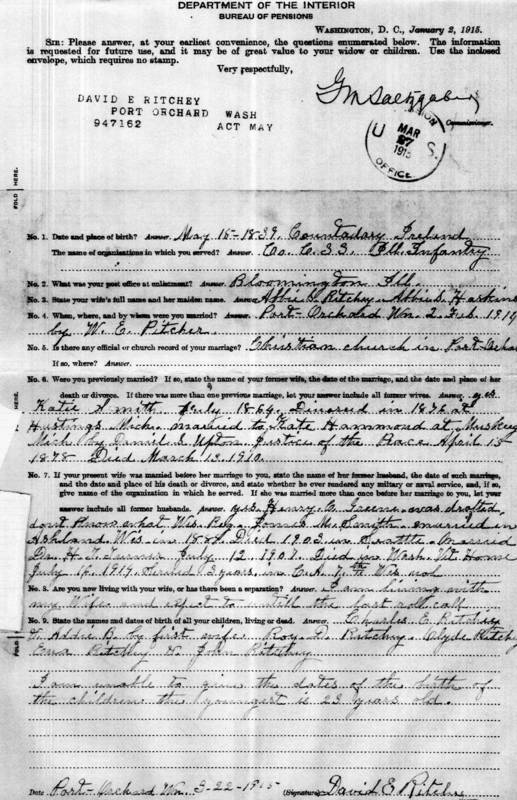 DEPARTMENT OF THE INTERIOR
BUREAU OF PENSIONS
WASHINGTON, D. C., January 2, 1915.
SIR: Please answer, at your earliest convenience, the questions enumerated below. The information
is requested for future use, and it may be of great value to your widow or children. Use the inclosed
envelope, which requires no stamp.
Very respectfully,
Commissioner.
DAVID E RITCHEY
PORT ORCHARD WASH
947162 ACT MAY
U. S. PENSION OFFICE
MAR 27 1915
FOLD HERE.
No. 1. Date and place of birth? Answer. May 15-1839. Ireland
The name of organizations in which you served? Answer. Co. C. 33 Ill. Infantry
No. 2. What was your post office at enlistment? Answer. Bloomington Ill.
No. 3. State your wife's full name and her maiden name. Answer. Ritchy
No. 4. When, where, and by whom were you married? Answer. Port-Orchard Wn. 2. Feb.
by W. E. Pitcher.
No. 5. Is there any official or church record of your marriage? Christian church in Port
If so, where? Answer.
No. 6. Were you previously married? If so, state the name of your former wife, the date of the marriage, and the date and place of her
death or divorce. If there was more than one previous marriage, let your answer include all former wives. Answer. yes
Katie Smith July 1869. Divorced in 1876 at
Hastings Mich. married to Kate Hammond at
Mich by Daniel Upton Justice of the Peace April 15
1878 Died March 13. 1910.
HERE.
No. 7. If your present wife was married before her marriage to you, state the name of her former husband, the date of such marriage,
and the date and place of his death or divorce, and state whether he ever rendered any military or naval service, and, if so,
give name of the organization in which he served. If she was married more than once before her marriage to you, let your
answer include all former husbands. Answer. yes. Henry was drafted
dont know what Wis. Reg. M. Smith married in
Ashland Wis in Died 1903 in Seattle. Married
H. July 12. Died in Wash. Vt Home
July 16. Served 3 years in Wis vol
No. 8. Are you now living with your wife, or has there been a separation? Answer. I am living with
my Wife and expect to untill the last roll call
No. 9. State the names and dates of birth of all your children, living or dead. Answer. Charles E Ritchey
Addie B. by first wife. Roy D. Ritchy. Clyde Ritchy
Ritchey John Ritchey
I am unable to give the dates of the birth of
the children the youngest is 23 years old.
FOLD
Date Port-Orchard Wn. 3-22-1915 (Signature) David E. Ritchey